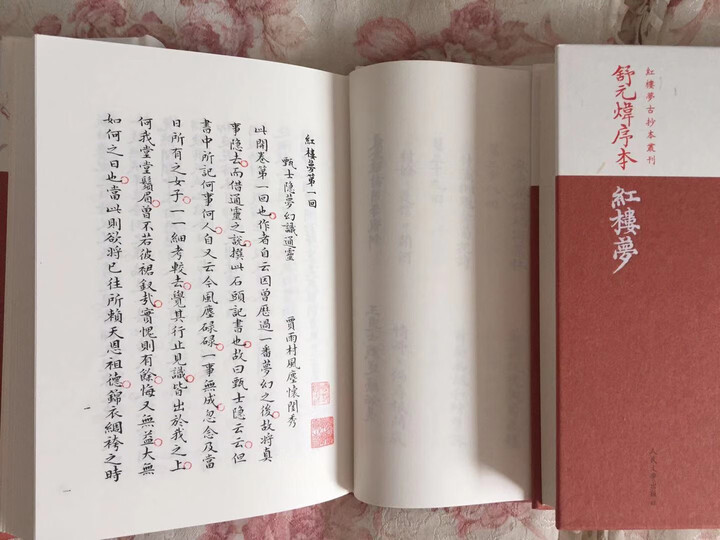 紅樓夢第一回
甄士隐夢幻識通靈 賈雨村風塵懷閨秀
此開卷第一回也作者自云因曾歷過一番夢幻之後故將真
事隐去而借通靈之說撰此石頭記書也故曰甄士隐云云但
書中所記何事何人自又云今風塵碌碌一事無成忽念及當
日所有之女子一一細考較去覺其行止見識皆出於我之上
何我堂堂鬚眉曾不若彼裙釵哉實愧則有餘悔又無益大無
如何之日也當此則欲將已往所賴天恩祖德錦衣綢袴之時
一
紅樓夢古抄本叢刊
舒元煒序本
紅樓夢
人民文學出版社